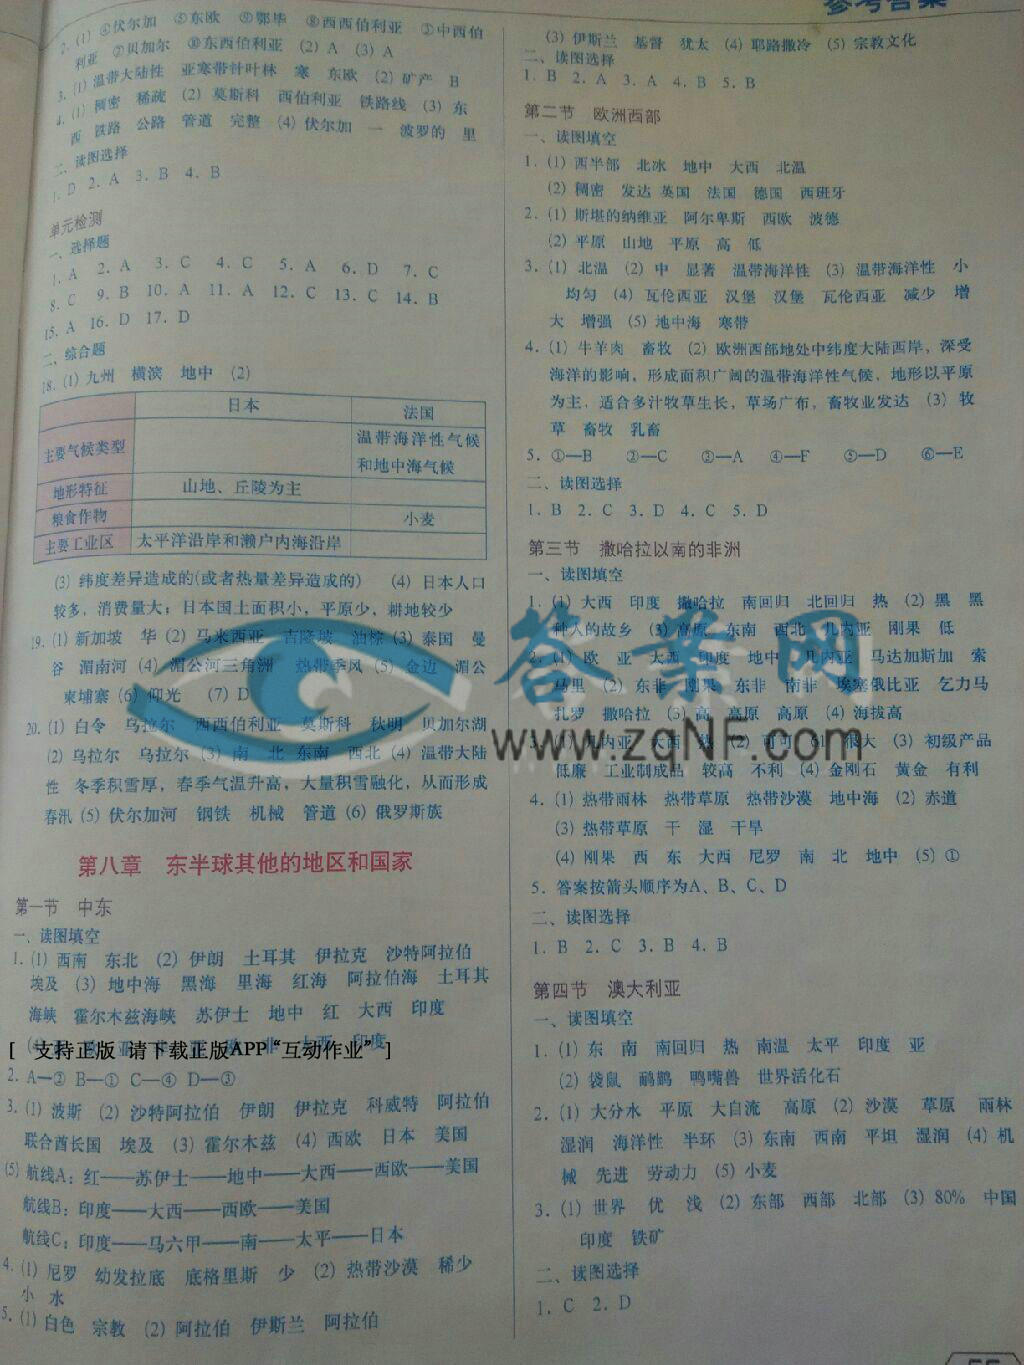 参考答案
2. (1) ④伏尔加 ⑤东欧 ⑨鄂毕 ⑧西西伯利亚 ③中西伯
利亚 ⑦贝加尔 ⑩东西伯利亚 (2) A (3) A
3. (1) 温带大陆性 亚寒带针叶林 寒 东欧 (2) 矿产 B
4. (1) 稠密 稀疏 (2) 莫斯科 西伯利亚 铁路线 (3) 东
西 铁路 公路 管道 完整 (4) 伏尔加 一 波罗的 里
二、读图选择
1. D 2. A 3. B 4. B
单元检测
一、选择题
1. A 2. A 3. C 4. C 5. A 6. D 7. C
8. C 9. B 10. A 11. A 12. C 13. C 14. B
15. A 16. D 17. D
二、综合题
18. (1) 九州 横滨 地中 (2)
日本 法国
主要气候类型 温带海洋性气候
和地中海气候
地形特征 山地、丘陵为主
粮食作物 小麦
主要工业区 太平洋沿岸和濑户内海沿岸
(3) 纬度差异造成的(或者热量差异造成的) (4) 日本人口
较多，消费量大；日本国土面积小，平原少，耕地较少
19. (1) 新加坡 华 (2) 马来西亚 吉隆坡 油棕 (3) 泰国 曼
谷 湄南河 (4) 湄公河三角洲 热带季风 (5) 金边 湄公
柬埔寨 (6) 仰光 (7) D
20. (1) 白令 乌拉尔 西西伯利亚 莫斯科 秋明 贝加尔湖
(2) 乌拉尔 乌拉尔 (3) 南 北 东南 西北 (4) 温带大陆
性 冬季积雪厚，春季气温升高，大量积雪融化，从而形成
春汛 (5) 伏尔加河 钢铁 机械 管道 (6) 俄罗斯族
第八章 东半球其他的地区和国家
第一节 中东
一、读图填空
1. (1) 西南 东北 (2) 伊朗 土耳其 伊拉克 沙特阿拉伯
埃及 (3) 地中海 黑海 里海 红海 阿拉伯海 土耳其
海峡 霍尔木兹海峡 苏伊士 地中 红 大西 印度
[ 支持正版 请下载正版APP“互动作业” ]
2. A—② B—① C—④ D—③
3. (1) 波斯 (2) 沙特阿拉伯 伊朗 伊拉克 科威特 阿拉伯
联合酋长国 埃及 (3) 霍尔木兹 (4) 西欧 日本 美国
(5) 航线A：红——苏伊士——地中——大西——西欧——美国
航线B：印度——大西——西欧——美国
航线C：印度——马六甲——南——太平——日本
4. (1) 尼罗 幼发拉底 底格里斯 少 (2) 热带沙漠 稀少
小 水
5. (1) 白色 宗教 (2) 阿拉伯 伊斯兰 阿拉伯
(3) 伊斯兰 基督 犹太 (4) 耶路撒冷 (5) 宗教文化
二、读图选择
1. B 2. A 3. A 4. B 5. B
第二节 欧洲西部
一、读图填空
1. (1) 西半部 北冰 地中 大西 北温
(2) 稠密 发达 英国 法国 德国 西班牙
2. (1) 斯堪的纳维亚 阿尔卑斯 西欧 波德
(2) 平原 山地 平原 高 低
3. (1) 北温 (2) 中 显著 温带海洋性 (3) 温带海洋性 小
均匀 (4) 瓦伦西亚 汉堡 汉堡 瓦伦西亚 减少 增
大 增强 (5) 地中海 寒带
4. (1) 牛羊肉 畜牧 (2) 欧洲西部地处中纬度大陆西岸，深受
海洋的影响，形成面积广阔的温带海洋性气候，地形以平原
为主，适合多汁牧草生长，草场广布，畜牧业发达 (3) 牧
草 畜牧 乳畜
5. ①—B ②—C ③—A ④—F ⑤—D ⑥—E
二、读图选择
1. B 2. C 3. D 4. C 5. D
第三节 撒哈拉以南的非洲
一、读图填空
1. (1) 大西 印度 撒哈拉 南回归 北回归 热 (2) 黑 黑
种人的故乡 (3) 高原 东南 西北 几内亚 刚果 低
2. (1) 欧 亚 大西 印度 地中 几内亚 马达加斯加 索
马里 (2) 东非 刚果 东非 南非 埃塞俄比亚 乞力马
扎罗 撒哈拉 (3) 高 高原 高原 (4) 海拔高
3. (1) 几内亚 大西 热 (2) 可可 61 很大 (3) 初级产品
低廉 工业制成品 较高 不利 (4) 金刚石 黄金 有利
4. (1) 热带雨林 热带草原 热带沙漠 地中海 (2) 赤道
(3) 热带草原 干 湿 干旱
(4) 刚果 西 东 大西 尼罗 南 北 地中 (5) ①
5. 答案按箭头顺序为A、B、C、D
二、读图选择
1. B 2. C 3. B 4. B
第四节 澳大利亚
一、读图填空
1. (1) 东 南 南回归 热 南温 太平 印度 亚
(2) 袋鼠 鸸鹋 鸭嘴兽 世界活化石
2. (1) 大分水 平原 大自流 高原 (2) 沙漠 草原 雨林
湿润 海洋性 半环 (3) 东南 西南 平坦 湿润 (4) 机
械 先进 劳动力 (5) 小麦
3. (1) 世界 优 浅 (2) 东部 西部 北部 (3) 80% 中国
印度 铁矿
二、读图选择
1. C 2. D
答案网
www.zqNF.com